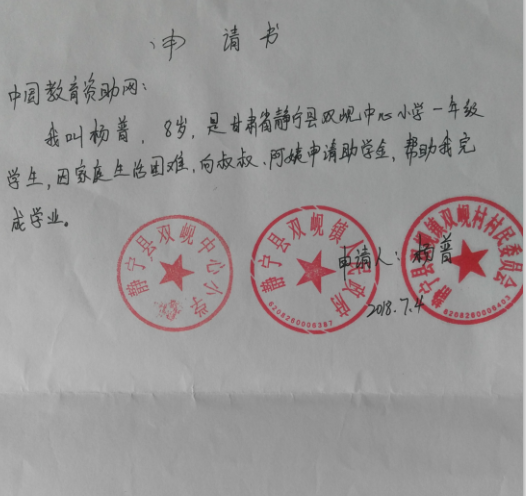 申请书
中国教育资助网：
我叫杨普，8岁，是甘肃省静宁县双岘中心小学一年级
学生，因家庭生活困难，向叔叔、阿姨申请助学金，帮助我完
成学业。
静宁县双岘中心小学
静宁县双岘镇人民政府
6208260006387
静宁县双岘镇双岘村村民委员会
申请人：杨普
2018.7.4